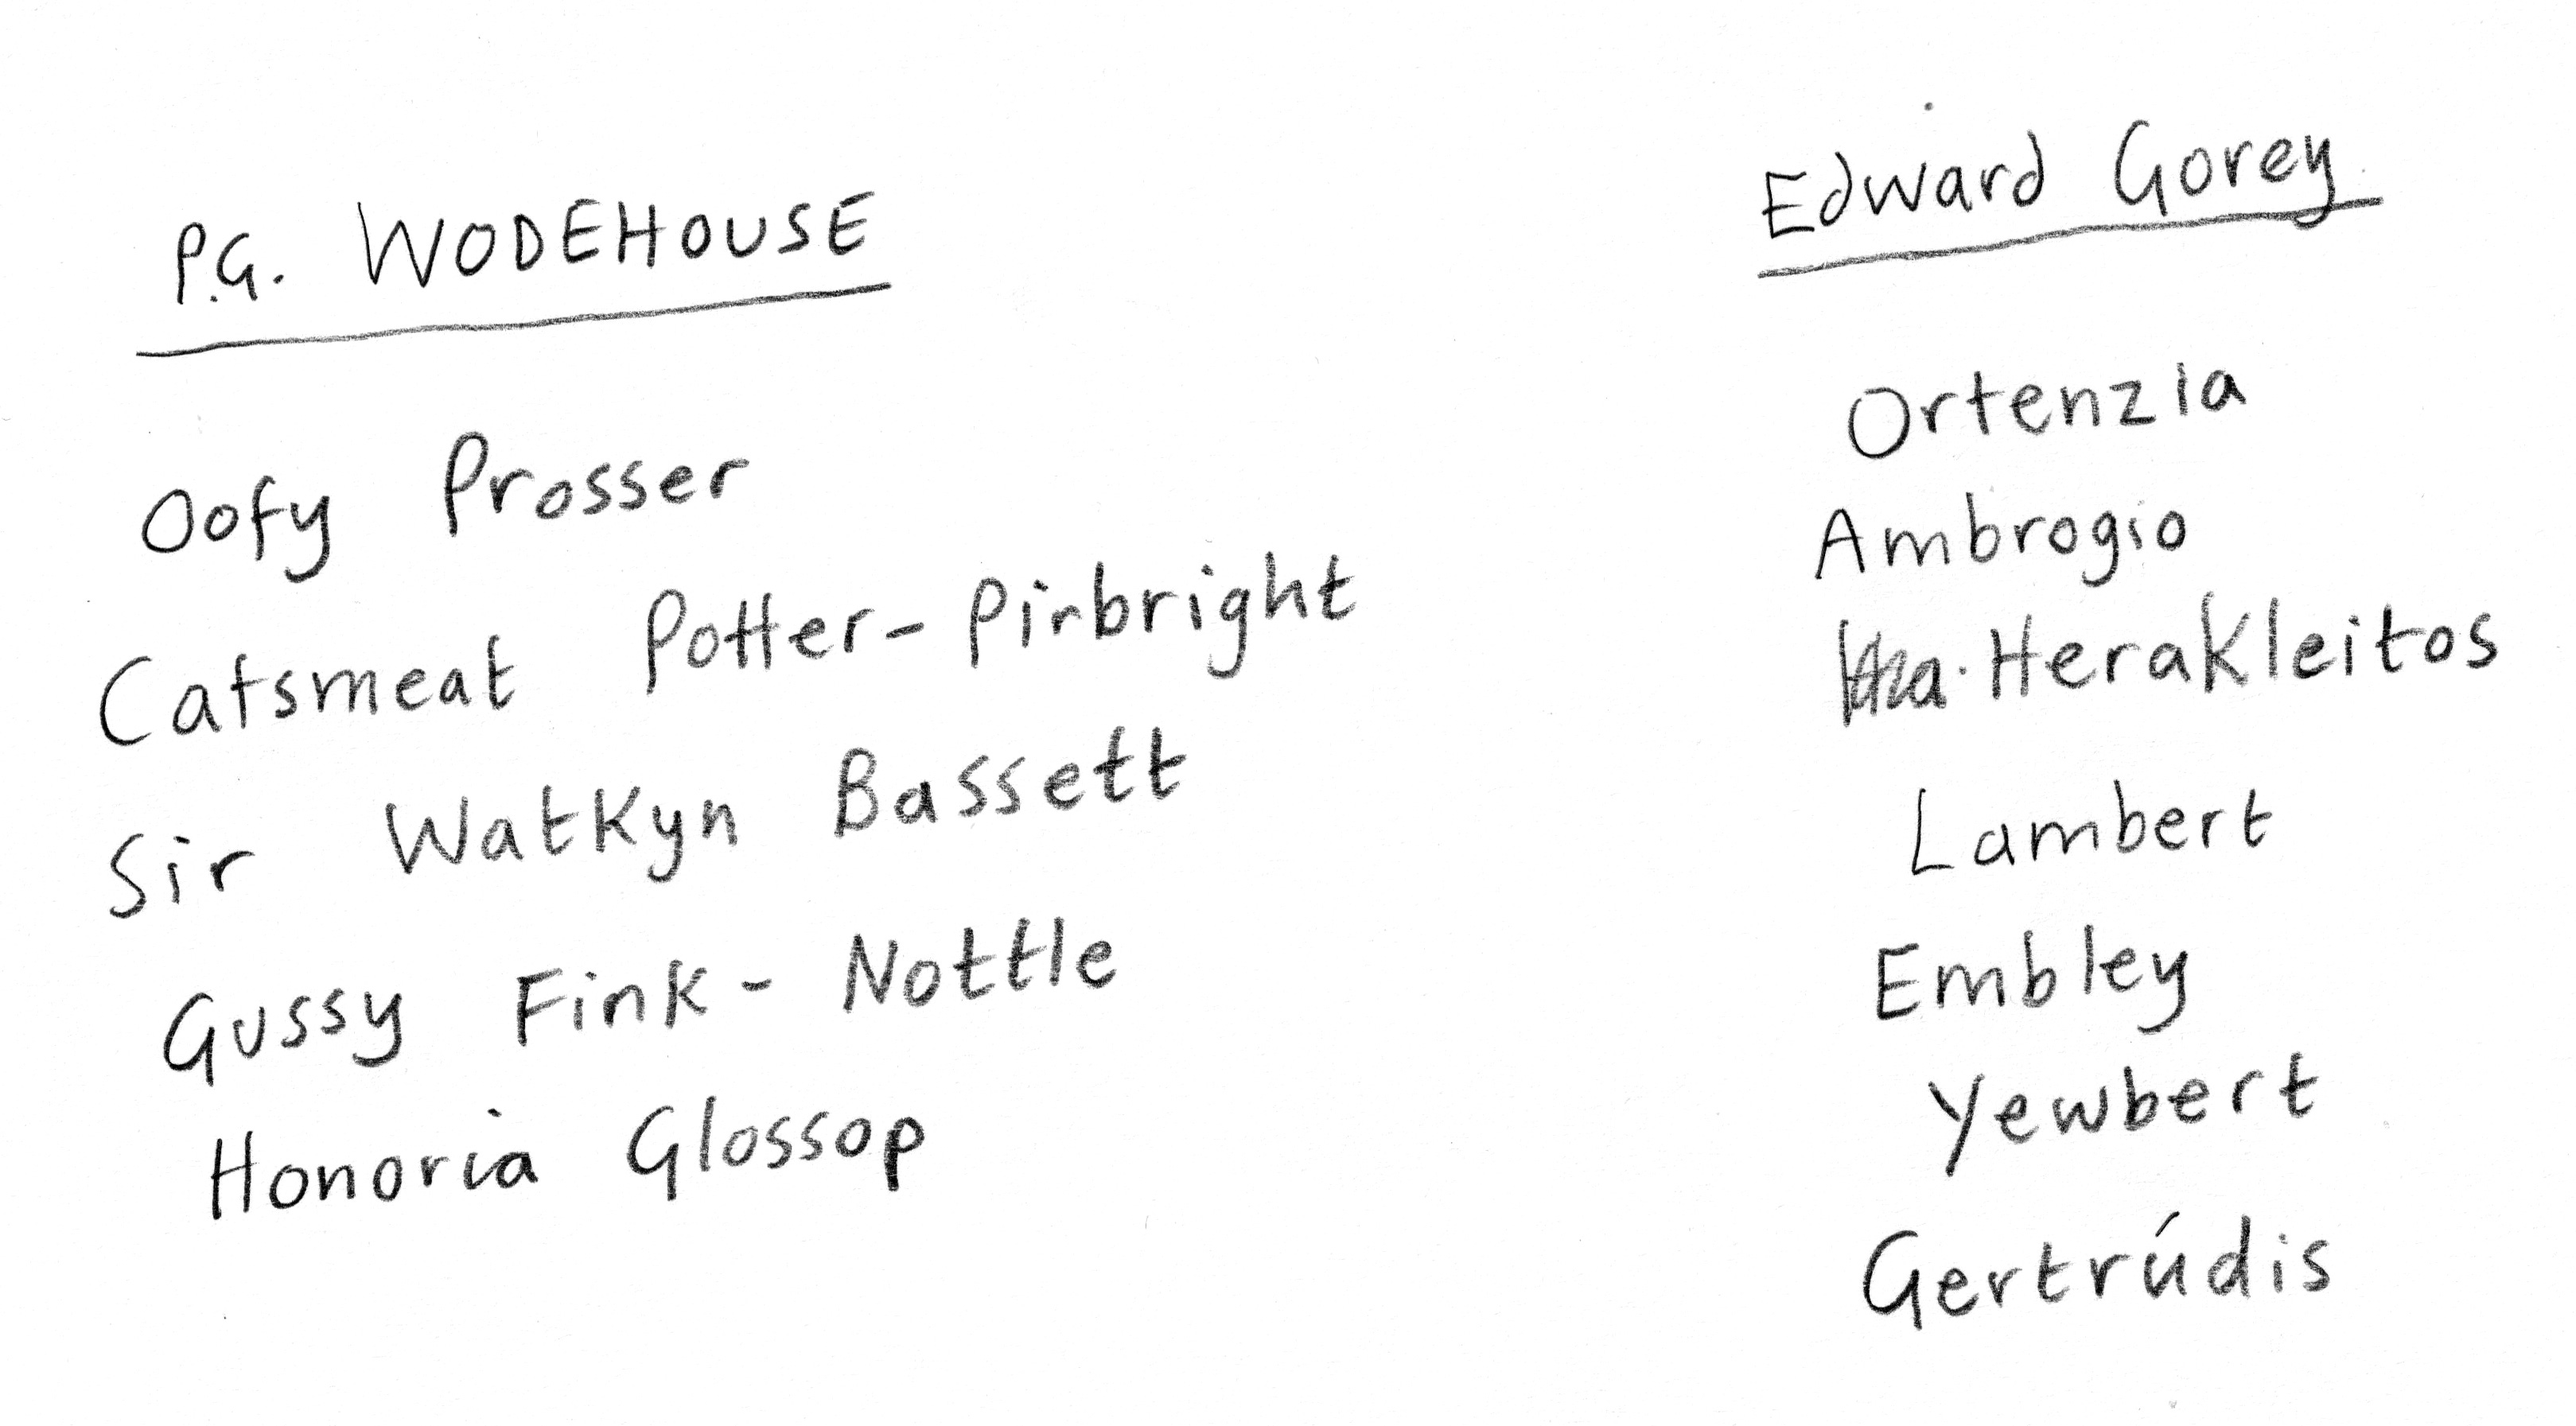 P.G. WODEHOUSE
Oofy Prosser
Catsmeat Potter-Pirbright
Sir Watkyn Bassett
Gussy Fink-Nottle
Honoria Glossop
Edward Gorey
Ortenzia
Ambrogio
Herakleitos
Lambert
Embley
Yewbert
Gertrúdis